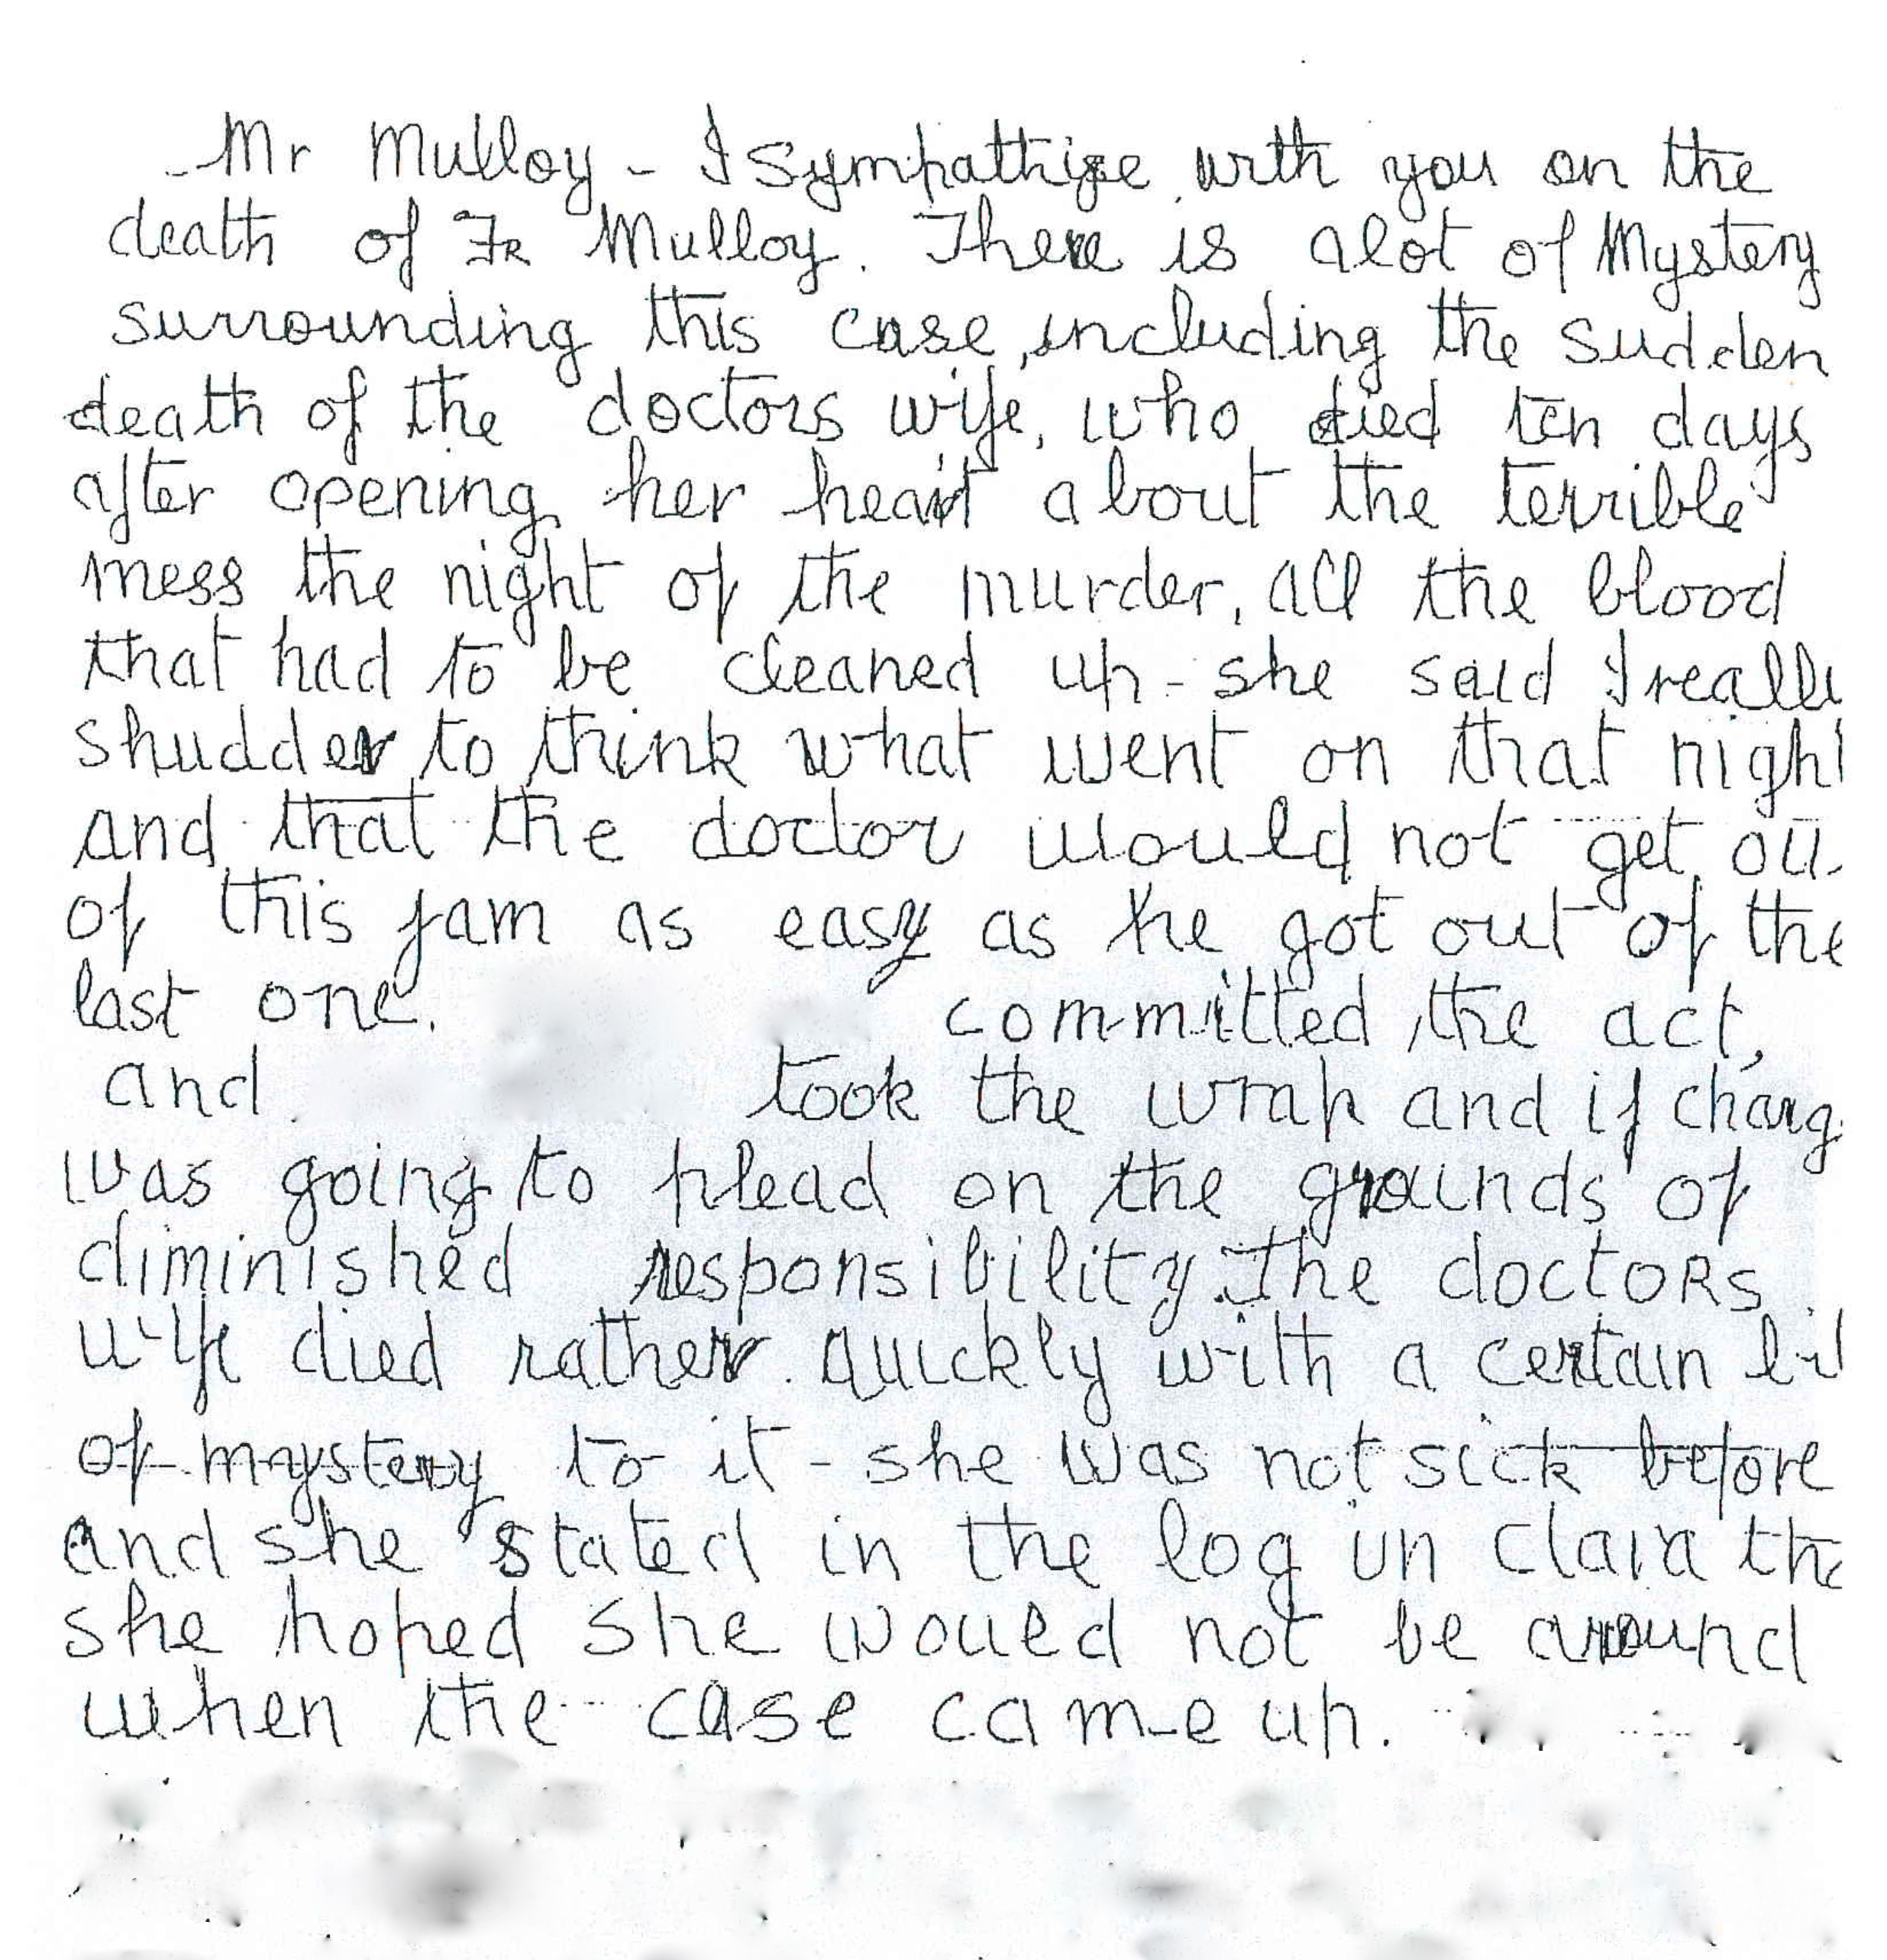 Mr Mulloy - I Sympathize with you on the
death of FR Mulloy. There is alot of Mystery
surrounding this case, including the sudden
death of the doctors wife, who died ten days
after opening her heart about the terrible
mess the night of the murder, all the blood
that had to be cleaned up - she said I reall
shudder to think what went on that nigh
and that the doctor would not get ou
of this jam as easy as he got out of the
last one. committed the act,
and took the wrap and if charg
was going to plead on the grounds of
diminished responsibility. The doctoRs
wife died rather quickly with a certain bit
of mystery to it - she was not sick before
and she stated in the log in Clara th
she hoped she would not be around
when the case came up.